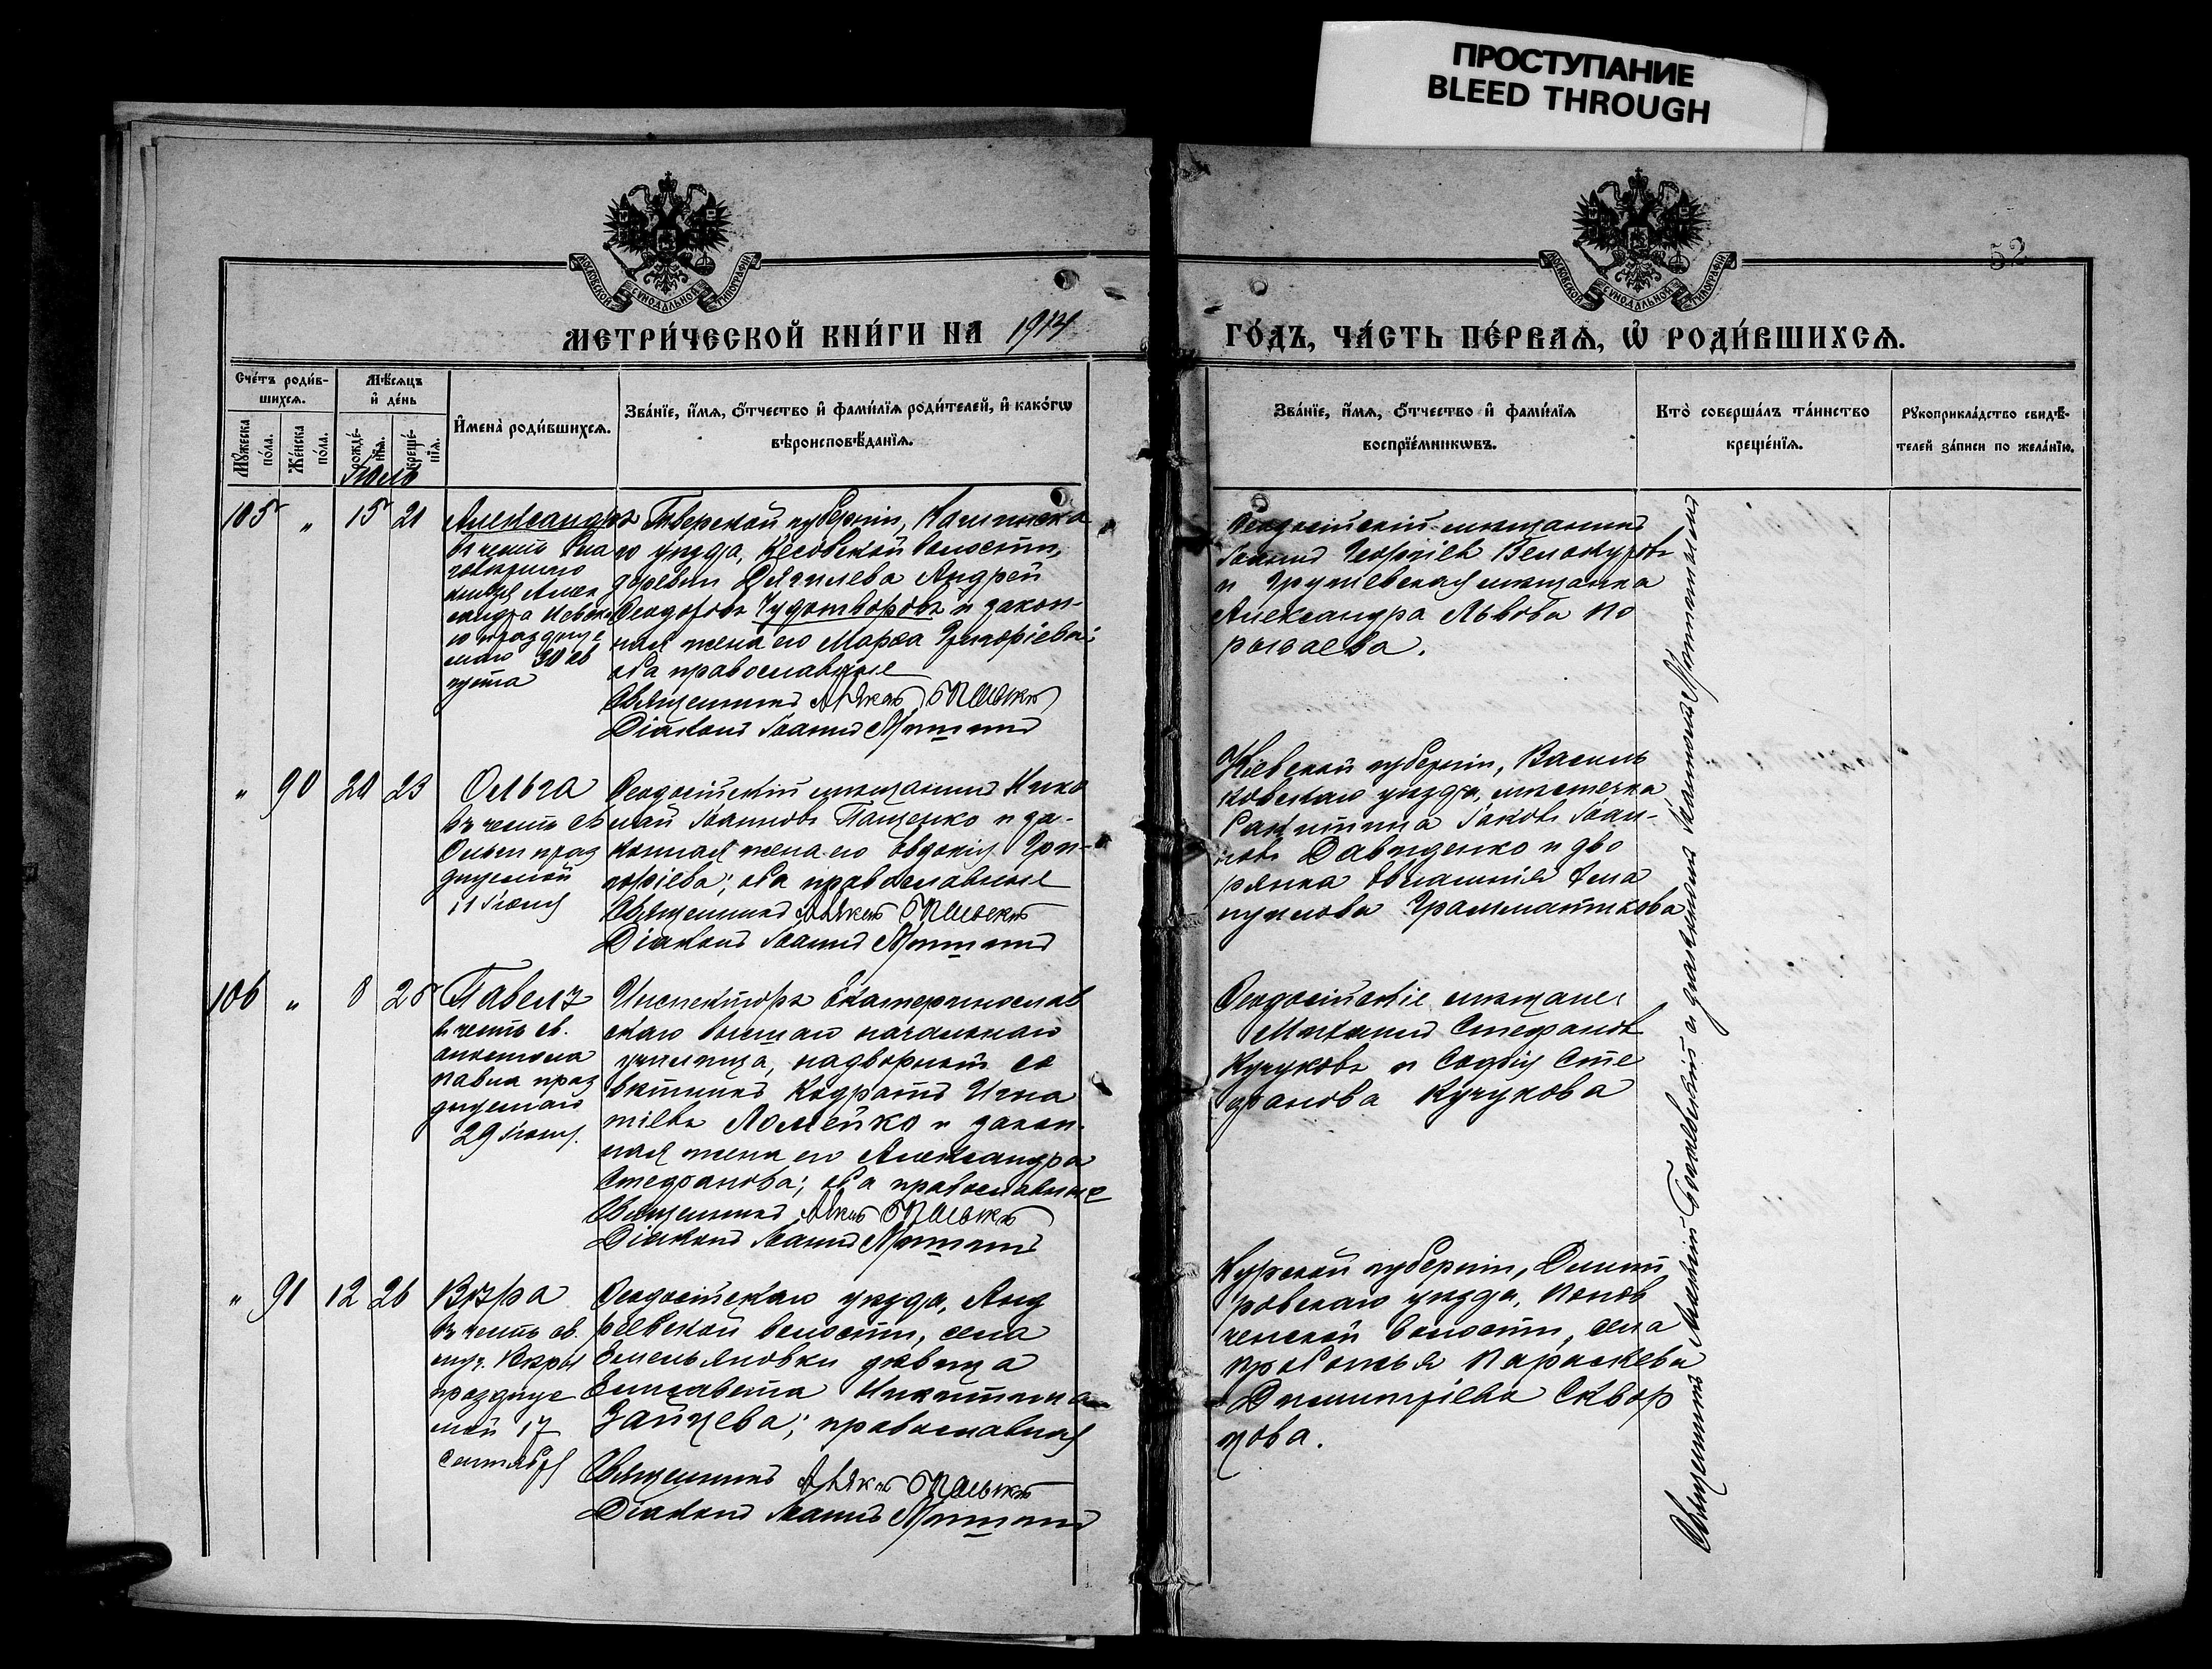 ПРОСТУПАНИЕ
BLEED THROUGH
МОСКОВСКОЙ СѴНОДАЛЬНОЙ ТИПОГРАФІИ
МОСКОВСКОЙ СѴНОДАЛЬНОЙ ТИПОГРАФІИ
52
МЕТРИ́ЧЕСКОЙ КНИ́ГИ НА 1914
ГО́ДЪ, ЧА́СТЬ ПЕ́РВАѦ, Ѡ҆ РОДИ́ВШИХСѦ.
Сче́тъ роди́в-
шихсѧ.
Мꙋ́жеска по́ла.
Же́нска по́ла.
Мѣ́сѧцъ
и҆ де́нь
рожде́-нїѧ.
креще́-нїѧ.
Іюль
И҆мена̀ роди́вшихсѧ.
Зва́нїе, и҆́мѧ, ѻ҆́тчество и҆ фами́лїѧ роди́телей, и҆ како́гѡ
вѣ́роисповѣ́данїѧ.
Зва́нїе, и҆́мѧ, ѻ҆́тчество и҆ фами́лїѧ
воспрїе́мникѡвъ.
Кто̀ соверша́лъ та́инство
креще́нїѧ.
Рꙋкоприкла́дство свидѣ́-
телей за́писи по жела́нїю.
105 " 15 21
Александръ
въ честь Бла
говѣрнаго
князя Алек
сандра Невска
го празднуе
маго 30 ав
густа
Тверской губерніи, Кашинска
го уѣзда, Кесовской волости,
деревни Дягилева Андрей
Ѳеодоровъ Чудотворовъ и закон-
ная жена его Марѳа Григоріева;
оба православные
Священникъ
Діаконъ Іоаннъ
Ѳеодосійскій мѣщанинъ
Іоаннъ Георгіевъ Белокуровъ
и мѣщанка
Александра Львова По
" 90 20 23
Ольга
въ честь св
Ольги праз
днуемой
11 Іюля
Ѳеодосійскій мѣщанинъ Нико
лай Іоанновъ Пащенко и за-
конная жена его Евдокія Гри-
горіева; оба православные
Священникъ
Діаконъ Іоаннъ
Кіевской губерніи, Василь
ковскаго уѣзда, мѣстечка
Ракитина Іаковъ Іоан-
новъ Давиденко и дво
рянка
Грамматикова
106 " 8 25
Павелъ
въ честь св.
апостола
Павла праз
днуемаго
29 Іюня.
Инспекторъ Екатеринослав
скаго высшаго начальнаго
училища, надворный со
вѣтникъ Кодратъ Игна
тіевъ Ломейко и закон-
ная жена его Александра
Стефанова; оба православные
Священникъ
Діаконъ Іоаннъ
Ѳеодосійскіе мѣщане
Михаилъ Стефановъ
Кучуковъ и Софія Сте
фанова Кучукова
" 91 12 26
Вѣра
въ честь св.
муч. Вѣры
празднуе
мой 17
Сентября
Ѳеодосійскаго уѣзда, Анд
реевской волости, села
Емельяновки дѣвица
Елисавета Никитина
Зайцева; православная
Священникъ
Діаконъ Іоаннъ
Курской губерніи, Дмит
ровскаго уѣзда,
волости, села
Параскева
Димитріева Сквор
цова.
Священникъ Алексій съ діакономъ Іоанномъ